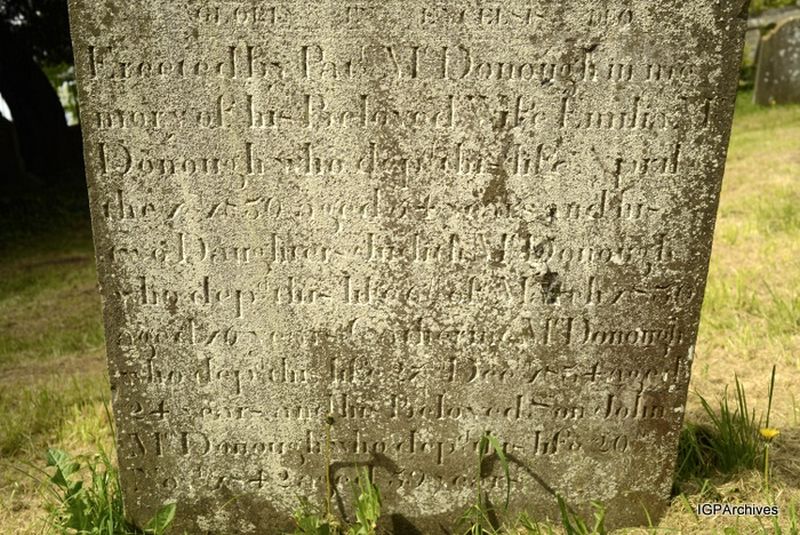 GLORIA IN EXCELSIS DEO
Erected by Patk McDonough in me
mory of his Beloved Wife Emilia Mc
Donough who depd this life April
the 1830 aged 54 years and his
two Daughters Judith McDonough
who depd this life 6th of March 1830
aged years Catherine McDonough
who depd this life Decr 1834 aged
24 years and his Beloved Son John
McDonough who depd this life 20
1842 aged 39 years
IGPArchives